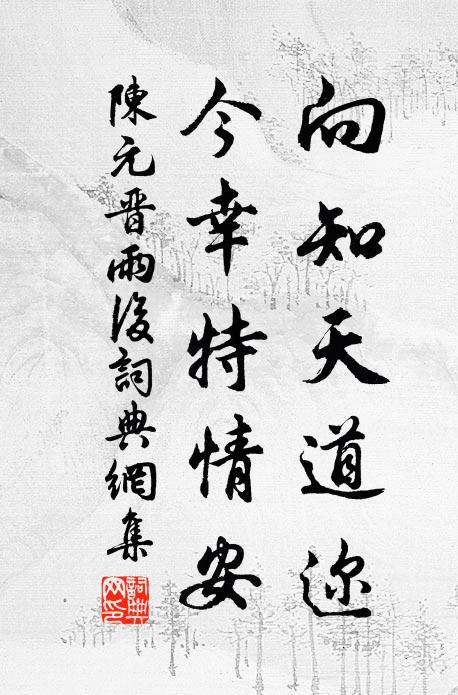 向知天道迩
今幸特情安
陳元晋雨後詞典網集
詞典